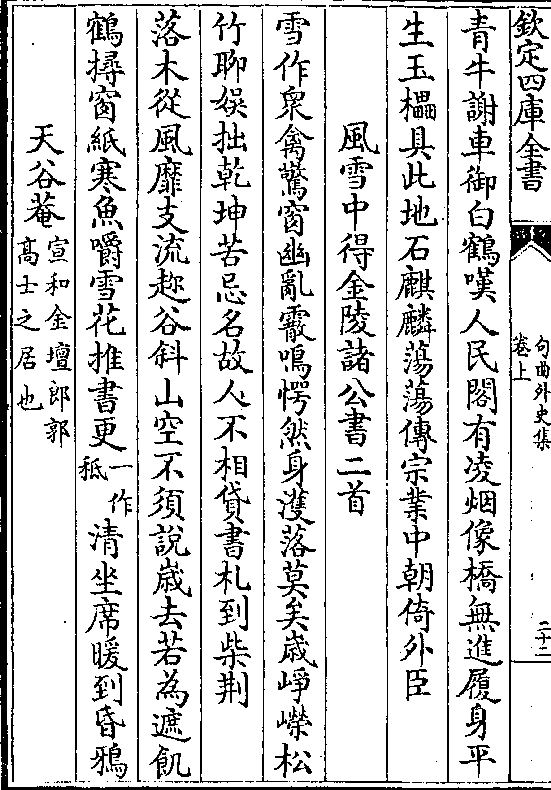 欽定四庫全書
句曲外史集
卷上
二十二
青牛謝車御白鶴嘆人民閣有凌烟像橋無進履身平
生玉櫑具此地石麒麟蕩蕩傳宗業中朝倚外臣
風雪中得金陵諸公書二首
雪作衆禽驚窗幽亂霰鳴愕然身濩落莫矣歳崢嶸松
竹聊娯拙乾坤苦忌名故人不相貸書札到柴荆
落木從風靡支流趂谷斜山空不須說歳去若為遮飢
鶴撏窗紙寒魚嚼雪花推書更一作秪清坐席暖到昏鴉
天谷菴宣和金壇郎郭高士之居也